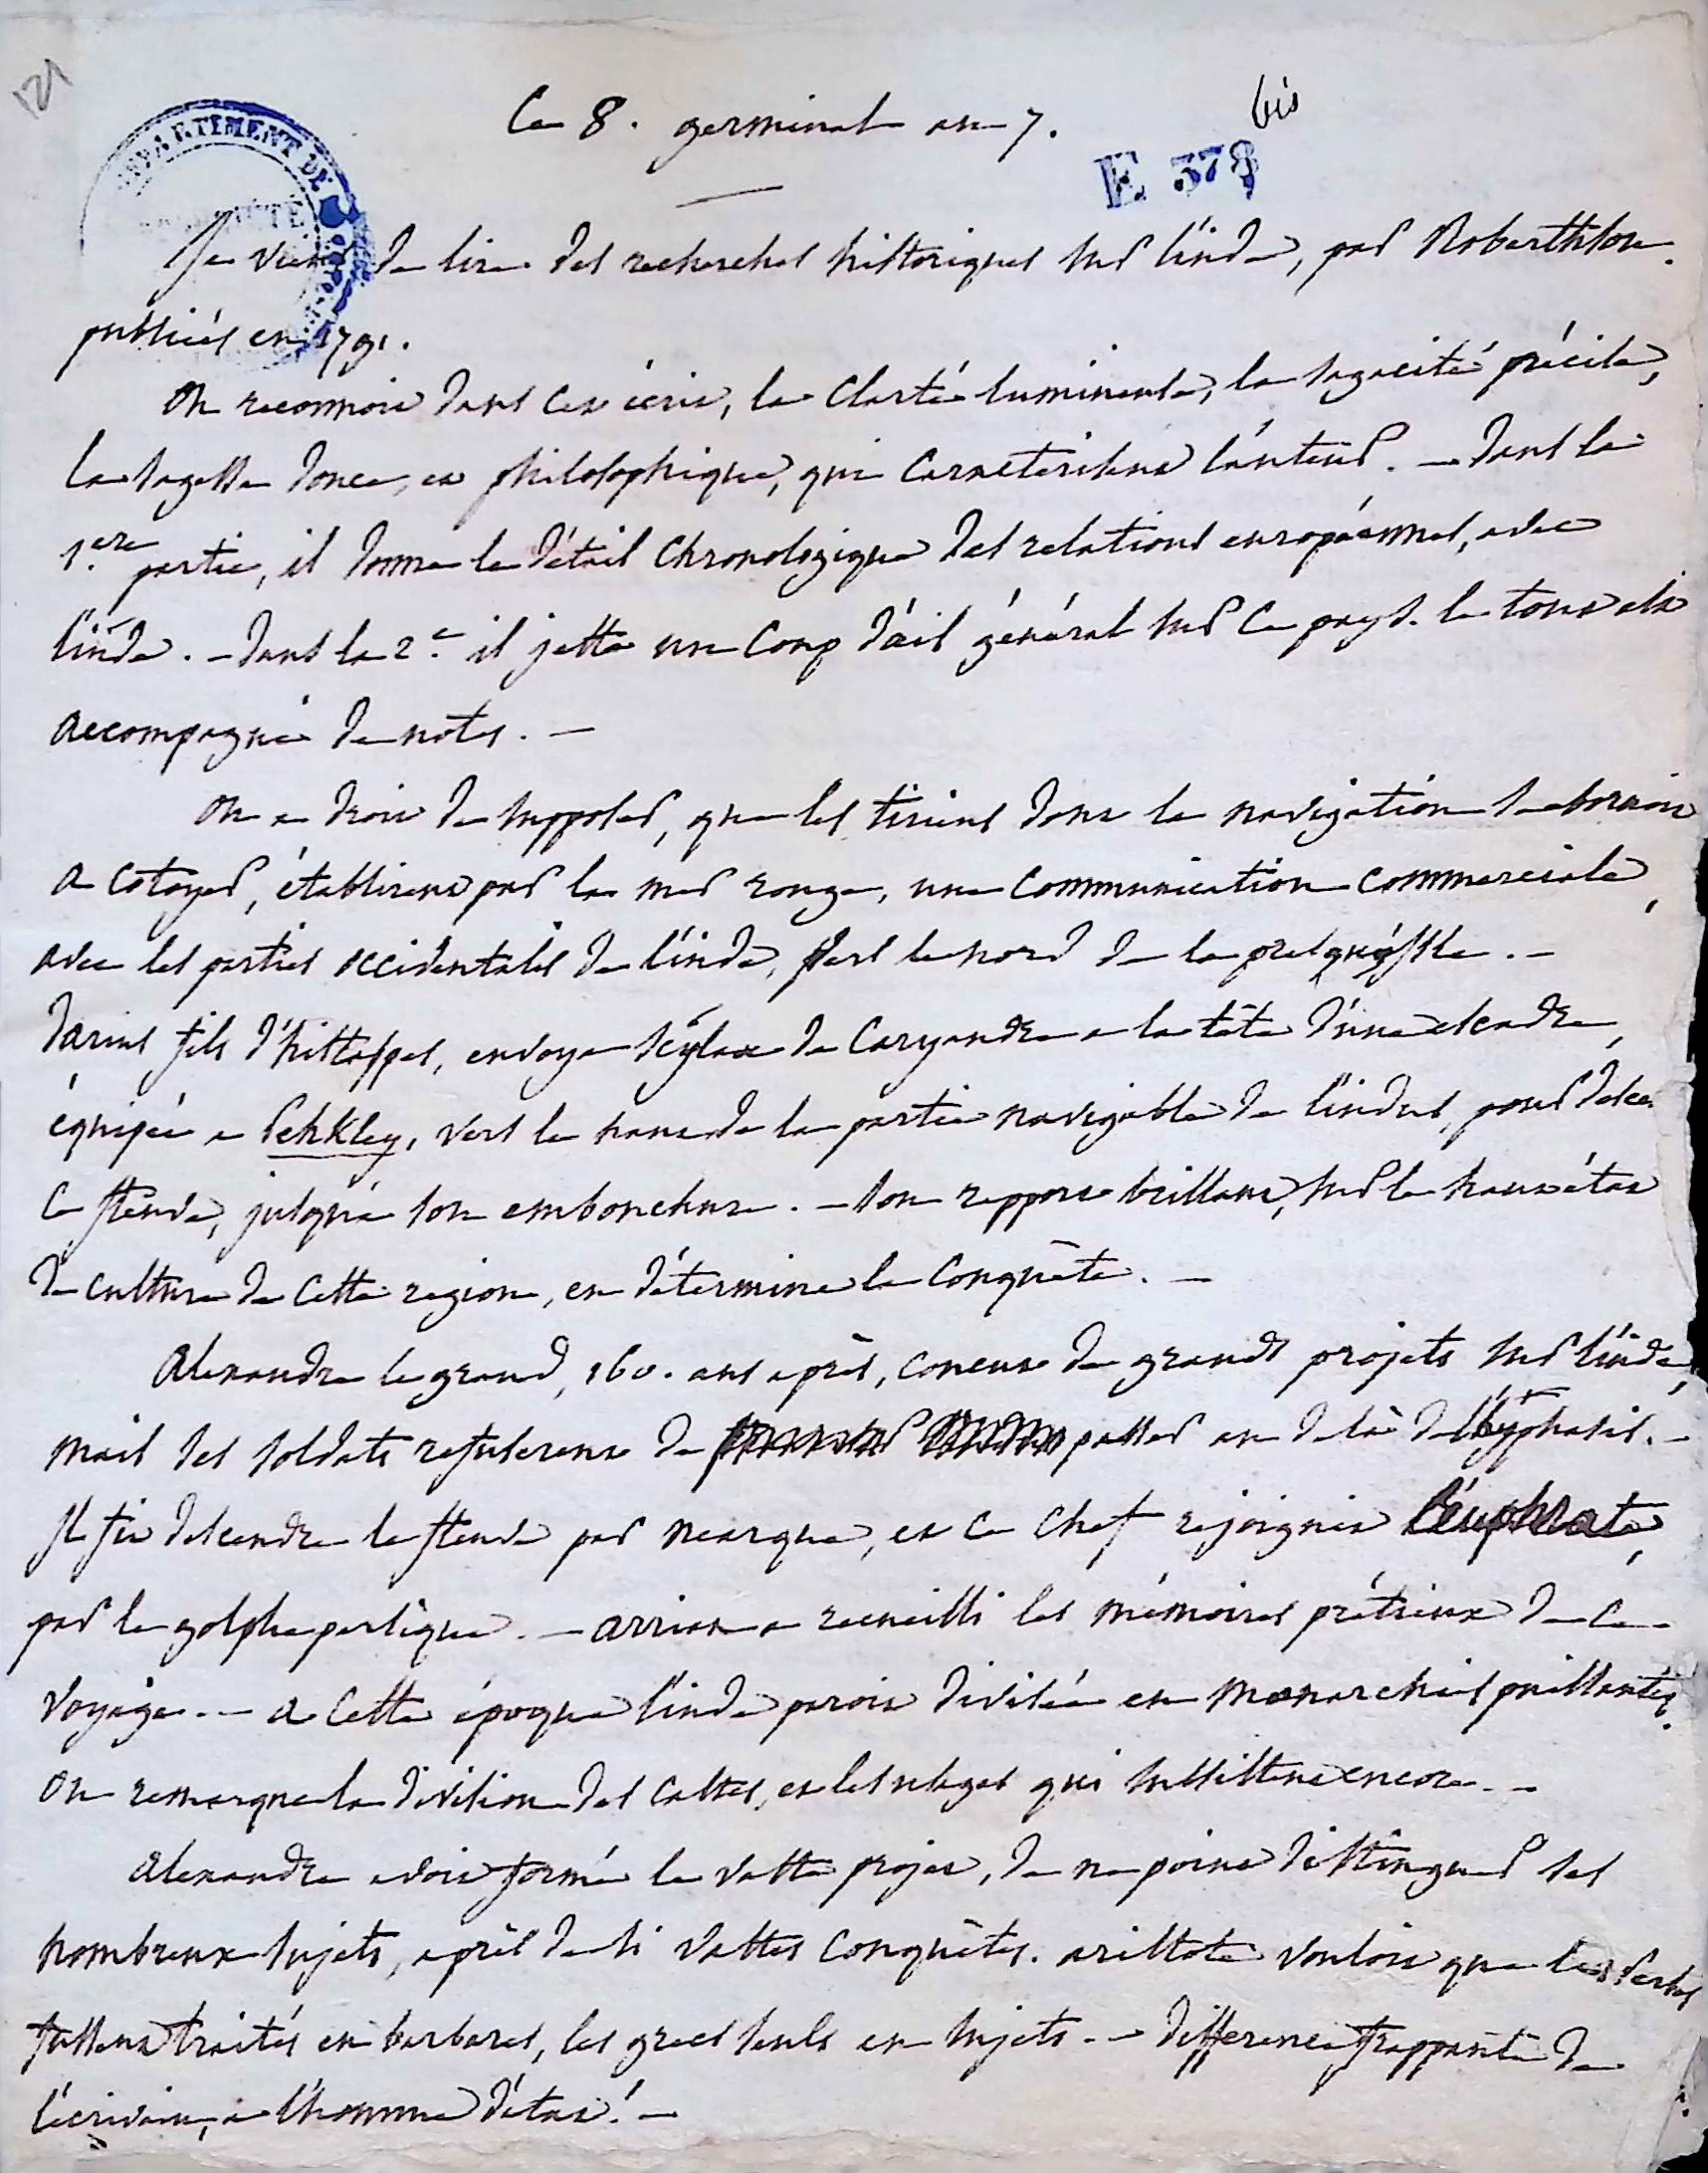 121
Ce 8. germinal an 7.
bis
E 378
DÉPARTEMENT DE
Je viens de lire des recherches historiques sur l'inde, par Roberthson.
publiées en 1791.
On reconnoit dans cet écrit, la clarté lumineuse, la sagacité précise,
la sagesse douce, et philosophique, qui caracterisent l'auteur. — dans la
1.ere partie, il donne le détail chronologique des relations européennes, avec
l'inde. — dans la 2.e il jette un coup d'œil général sur ce pays. le tout est
accompagné de notes. —
On a droit de supposer, que les tiriens dont la navigation se bornoit
a cotoyer, établirent par la mer rouge, une communication commerciale,
avec les parties occidentales de l'inde, vers le nord de la presqu'isle. —
darius fils d'histaspes, envoya scylax de Caryandre a la tête d'une escadre,
équipée a Pehkley, vers le haut de la partie navigable de l'indus, pour descen
ce fleuve, jusqu'a son embouchure. — son rapport brillant, sur le haut état
de culture de cette region, en détermine la conquête. —
Alexandre le grand, 160. ans après, concut de grands projets sur l'inde,
mais ses soldats refuserent de passer au delà de l'hyphasis. —
Il fit descendre le fleuve par nearque, et ce chef rejoignit l'euphrate,
par le golphe persique. — arrien a recueilli les mémoires prétieux de ce
voyage. — a cette époque l'inde paroit divisée en monarchies puissantes.
On remarque la division des castes, et les usages qui subsistent encore. —
Alexandre avoit formé le vaste projet, de ne point distinguer ses
nombreux sujets, après de si vastes conquêtes. aristote vouloit que les perses
fussent traités en barbares, les grecs seuls en sujets. — difference frappante de
l'écrivain, a l'homme d'état! —